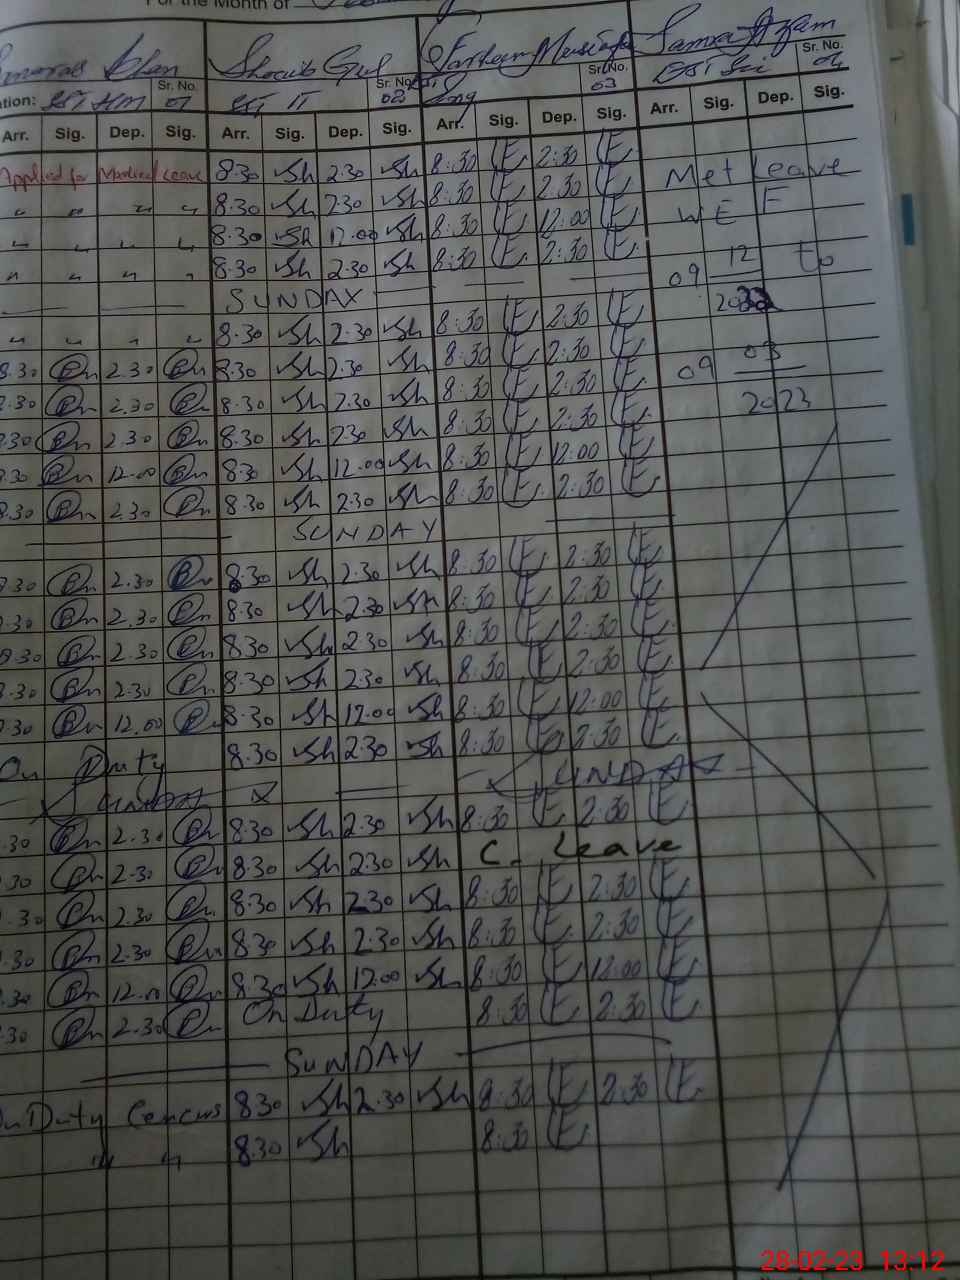 For the Month of
Khan Shoaib Gul Samra Azam
Sr. No. Sr. No. Sr. No. Sr. No.
EST HM 01 EST IT 02 03 EST Sci 04
Arr. Sig. Dep. Sig. Arr. Sig. Dep. Sig. Arr. Sig. Dep. Sig. Arr. Sig. Dep. Sig.
Applied for Medical Leave 8.30 Sh 2.30 Sh 8:30 E 2:30 E Met Leave
" " " " 8.30 Sh 2.30 Sh 8:30 E 2:30 E W E F
" " " " 8.30 Sh 12.00 Sh 8:30 E 12:00 E
" " " " 8.30 Sh 2.30 Sh 8:30 E 2:30 E 09 12 to
SUNDAY 2022
" " " " 8.30 Sh 2.30 Sh 8:30 E 2:30 E
8.30 2.30 8.30 Sh 2.30 Sh 8:30 E 2:30 E 09 03
8.30 2.30 8.30 Sh 2.30 Sh 8:30 E 2:30 E 2023
8.30 2.30 8.30 Sh 2.30 Sh 8:30 E 2:30 E
8.30 12.00 8.30 Sh 12.00 Sh 8:30 E 12:00 E
8.30 2.30 8.30 Sh 2.30 Sh 8:30 E 2:30 E
SUNDAY
8.30 2.30 8.30 Sh 2.30 Sh 8:30 E 2:30 E
8.30 2.30 8.30 Sh 2.30 Sh 8:30 E 2:30 E
8.30 2.30 8.30 Sh 2.30 Sh 8:30 E 2:30 E
8.30 2.30 8.30 Sh 2.30 Sh 8:30 E 2:30 E
8.30 12.00 8.30 Sh 12.00 Sh 8:30 E 12:00 E
On Duty 8.30 Sh 2.30 Sh 8:30 E 2:30 E
SUNDAY SUNDAY
8.30 2.30 8.30 Sh 2.30 Sh 8:30 E 2:30 E
8.30 2.30 8.30 Sh 2.30 Sh C. Leave
8.30 2.30 8.30 Sh 2.30 Sh 8:30 E 2:30 E
8.30 2.30 8.30 Sh 2.30 Sh 8:30 E 2:30 E
8.30 12.00 8.30 Sh 12.00 Sh 8:30 E 12:00 E
8.30 2.30 On Duty 8:30 E 2:30 E
SUNDAY
On Duty Cencus 8.30 Sh 2.30 Sh 8:30 E 2:30 E
" " 8.30 Sh 8:30 E
28-02-23 13:12